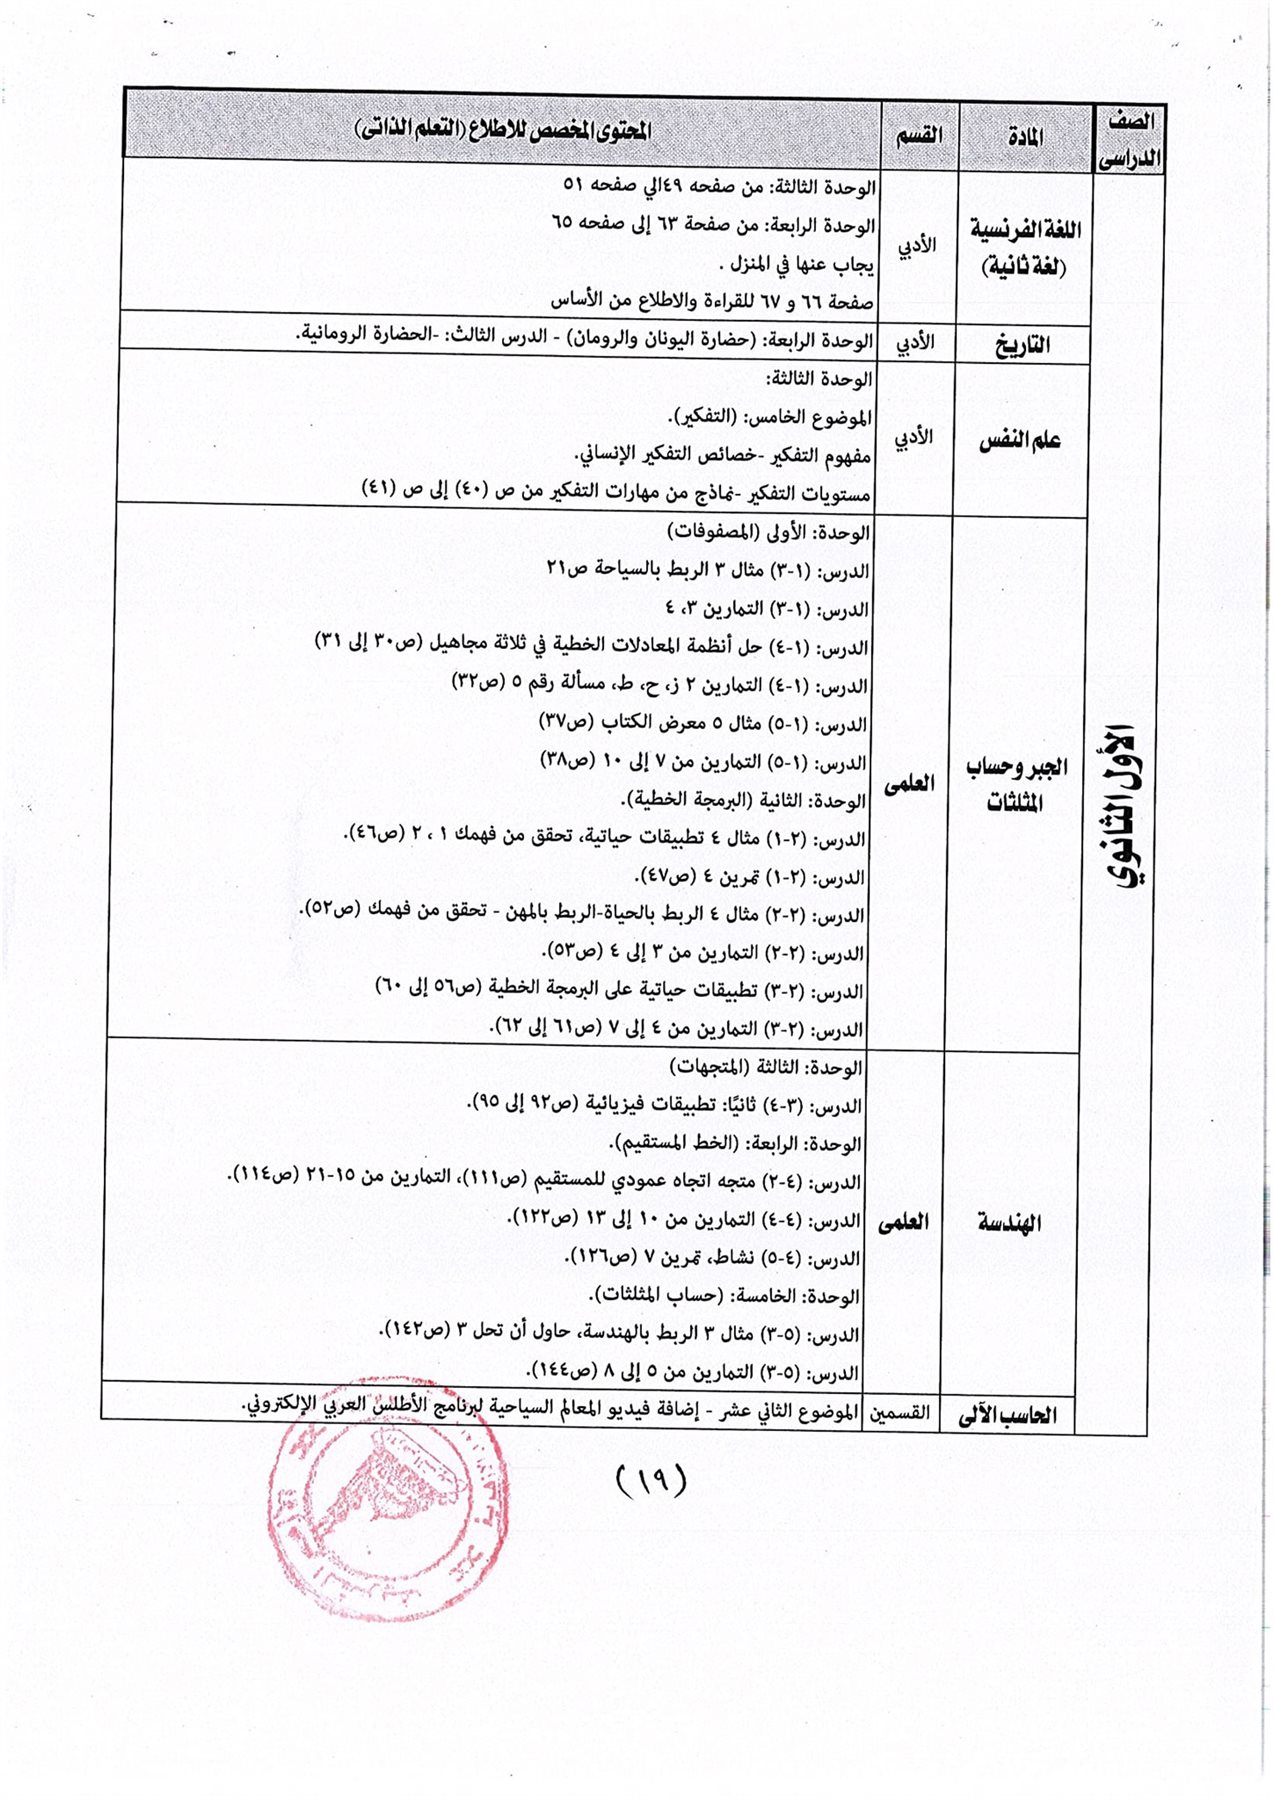 الصف الدراسى
المادة
القسم
المحتوى المخصص للاطلاع (التعلم الذاتى)
الأول الثانوي
اللغة الفرنسية
(لغة ثانية)
الأدبي
الوحدة الثالثة: من صفحه ٤٩الي صفحه ٥١
الوحدة الرابعة: من صفحة ٦٣ إلى صفحه ٦٥
يجاب عنها في المنزل .
صفحة ٦٦ و ٦٧ للقراءة والاطلاع من الأساس
التاريخ
الأدبي
الوحدة الرابعة: (حضارة اليونان والرومان) - الدرس الثالث: -الحضارة الرومانية.
علم النفس
الأدبي
الوحدة الثالثة:
الموضوع الخامس: (التفكير).
مفهوم التفكير -خصائص التفكير الإنساني.
مستويات التفكير -نماذج من مهارات التفكير من ص (٤٠) إلى ص (٤١)
الجبر وحساب
المثلثات
العلمى
الوحدة: الأولى (المصفوفات)
الدرس: (١-٣) مثال ٣ الربط بالسياحة ص٢١
الدرس: (١-٣) التمارين ٣، ٤
الدرس: (١-٤) حل أنظمة المعادلات الخطية في ثلاثة مجاهيل (ص٣٠ إلى ٣١)
الدرس: (١-٤) التمارين ٢ ز، ح، ط، مسألة رقم ٥ (ص٣٢)
الدرس: (١-٥) مثال ٥ معرض الكتاب (ص٣٧)
الدرس: (١-٥) التمارين من ٧ إلى ١٠ (ص٣٨)
الوحدة: الثانية (البرمجة الخطية).
الدرس: (٢-١) مثال ٤ تطبيقات حياتية، تحقق من فهمك ١ ، ٢ (ص٤٦).
الدرس: (٢-١) تمرين ٤ (ص٤٧).
الدرس: (٢-٢) مثال ٤ الربط بالحياة-الربط بالمهن - تحقق من فهمك (ص٥٢).
الدرس: (٢-٢) التمارين من ٣ إلى ٤ (ص٥٣).
الدرس: (٢-٣) تطبيقات حياتية على البرمجة الخطية (ص٥٦ إلى ٦٠)
الدرس: (٢-٣) التمارين من ٤ إلى ٧ (ص٦١ إلى ٦٢).
الهندسة
العلمى
الوحدة: الثالثة (المتجهات)
الدرس: (٣-٤) ثانيًا: تطبيقات فيزيائية (ص٩٢ إلى ٩٥).
الوحدة: الرابعة: (الخط المستقيم).
الدرس: (٤-٢) متجه اتجاه عمودي للمستقيم (ص١١١)، التمارين من ١٥-٢١ (ص١١٤).
الدرس: (٤-٤) التمارين من ١٠ إلى ١٣ (ص١٢٢).
الدرس: (٤-٥) نشاط، تمرين ٧ (ص١٢٦).
الوحدة: الخامسة: (حساب المثلثات).
الدرس: (٥-٣) مثال ٣ الربط بالهندسة، حاول أن تحل ٣ (ص١٤٢).
الدرس: (٥-٣) التمارين من ٥ إلى ٨ (ص١٤٤).
الحاسب الآلى
القسمين
الموضوع الثاني عشر - إضافة فيديو المعالم السياحية لبرنامج الأطلس العربي الإلكتروني.
(١٩)